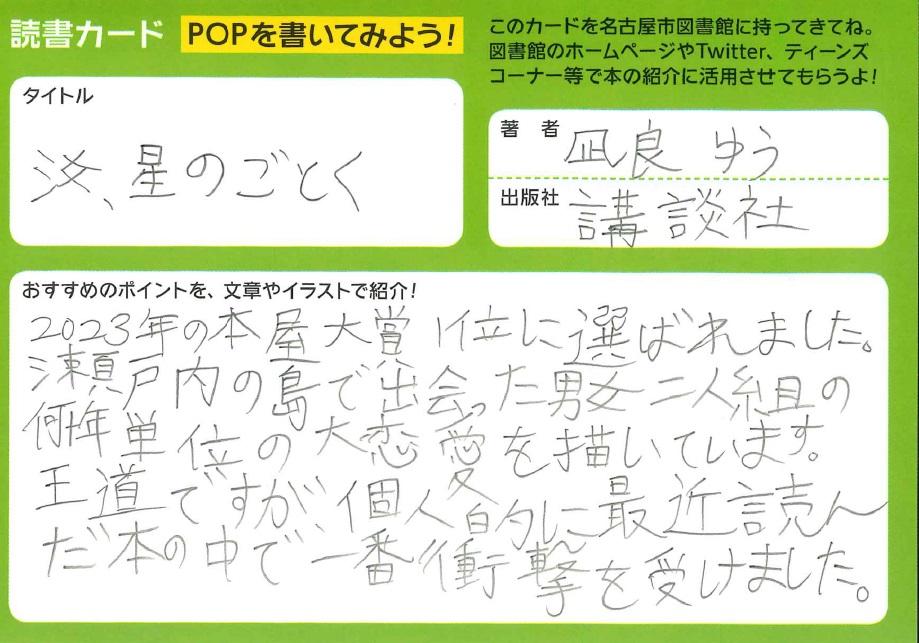 読書カード POPを書いてみよう!
このカードを名古屋市図書館に持ってきてね。
図書館のホームページやTwitter、ティーンズ
コーナー等で本の紹介に活用させてもらうよ!
タイトル
汝、星のごとく
著 者 凪良 ゆう
出版社 講談社
おすすめのポイントを、文章やイラストで紹介!
2023年の本屋大賞1位に選ばれました。
瀬戸内の島で出会った男女二人組の
何年単位の大恋愛を描いています。
王道ですが個人的に最近読ん
だ本の中で一番衝撃を受けました。